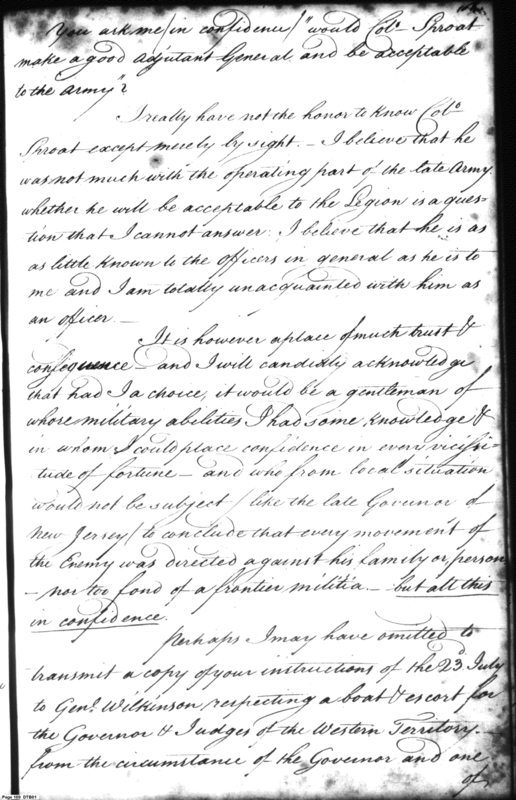 You ask me/in confidence/"would Colo. Sproat
make a good Adjutant General, and be acceptable
to the Army"?
I really have not the honor to know Colo.
Sproat except merely by sight. — I believe that he
was not much with the operating part of the late Army.
whether he will be acceptable to the Legion is a ques-
tion that I cannot answer. I believe that he is as
as little known to the officers in general as he is to
me and I am totally unacquainted with him as
an officer —
It is however a place of much trust &
consequence and I will candidly acknowledge
that had I a choice, it would be a gentleman of
whose military abilities I had some knowledge &
in whom I could place confidence in every vicissi-
tude of fortune — and who from local situation
would not be subject / like the late Govenor of
New Jersey / to conclude that every movement of
the Enemy was directed against his family or person
— nor too fond of a frontier militia — but all this
in confidence.
Perhaps I may have omitted to
transmit a copy of your instructions of the 23d. July
to Genl. Wilkinson, respecting a boat & escort for
the Governor & Judges of the Western Territory. —
from the circumstance of the Governor and one
of
Page 169 DTB01